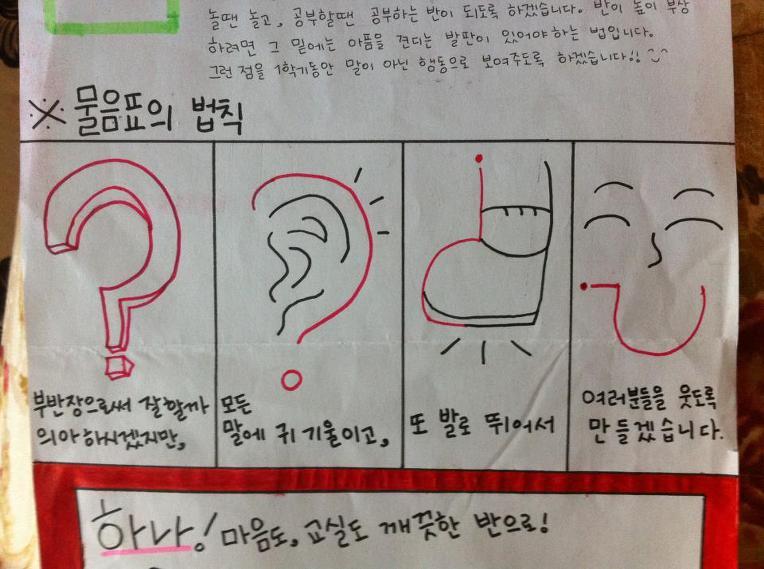 놀땐 놀고, 공부할땐 공부하는 반이 되도록 하겠습니다. 반이 높이 부상
하려면 그 밑에는 아픔을 견디는 발판이 있어야 하는 법입니다.
그런 점을 1학기동안 말이 아닌 행동으로 보여주도록 하겠습니다!! ^^
※ 물음표의 법칙
부반장으로써 잘할까
의아하시겠지만,
모든
말에 귀 기울이고,
또 발로 뛰어서
여러분들을 웃도록
만들겠습니다.
하나! 마음도, 교실도 깨끗한 반으로!